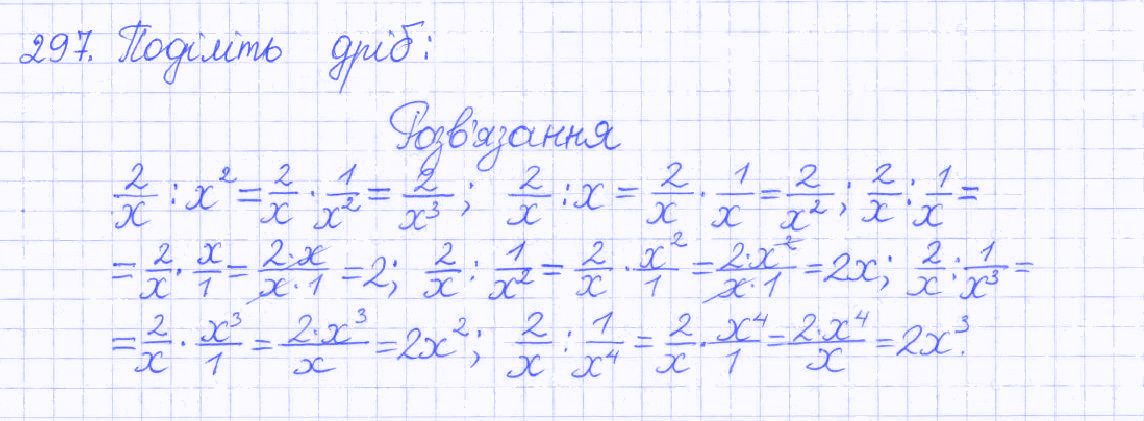 297. Поділіть дріб:
Розв'язання
2/x : x² = 2/x · 1/x² = 2/x³; 2/x : x = 2/x · 1/x = 2/x²; 2/x : 1/x =
= 2/x · x/1 = 2·x/x·1 = 2; 2/x : 1/x² = 2/x · x²/1 = 2·x²/x·1 = 2x; 2/x : 1/x³ =
= 2/x · x³/1 = 2·x³/x = 2x²; 2/x : 1/x⁴ = 2/x · x⁴/1 = 2·x⁴/x = 2x³.